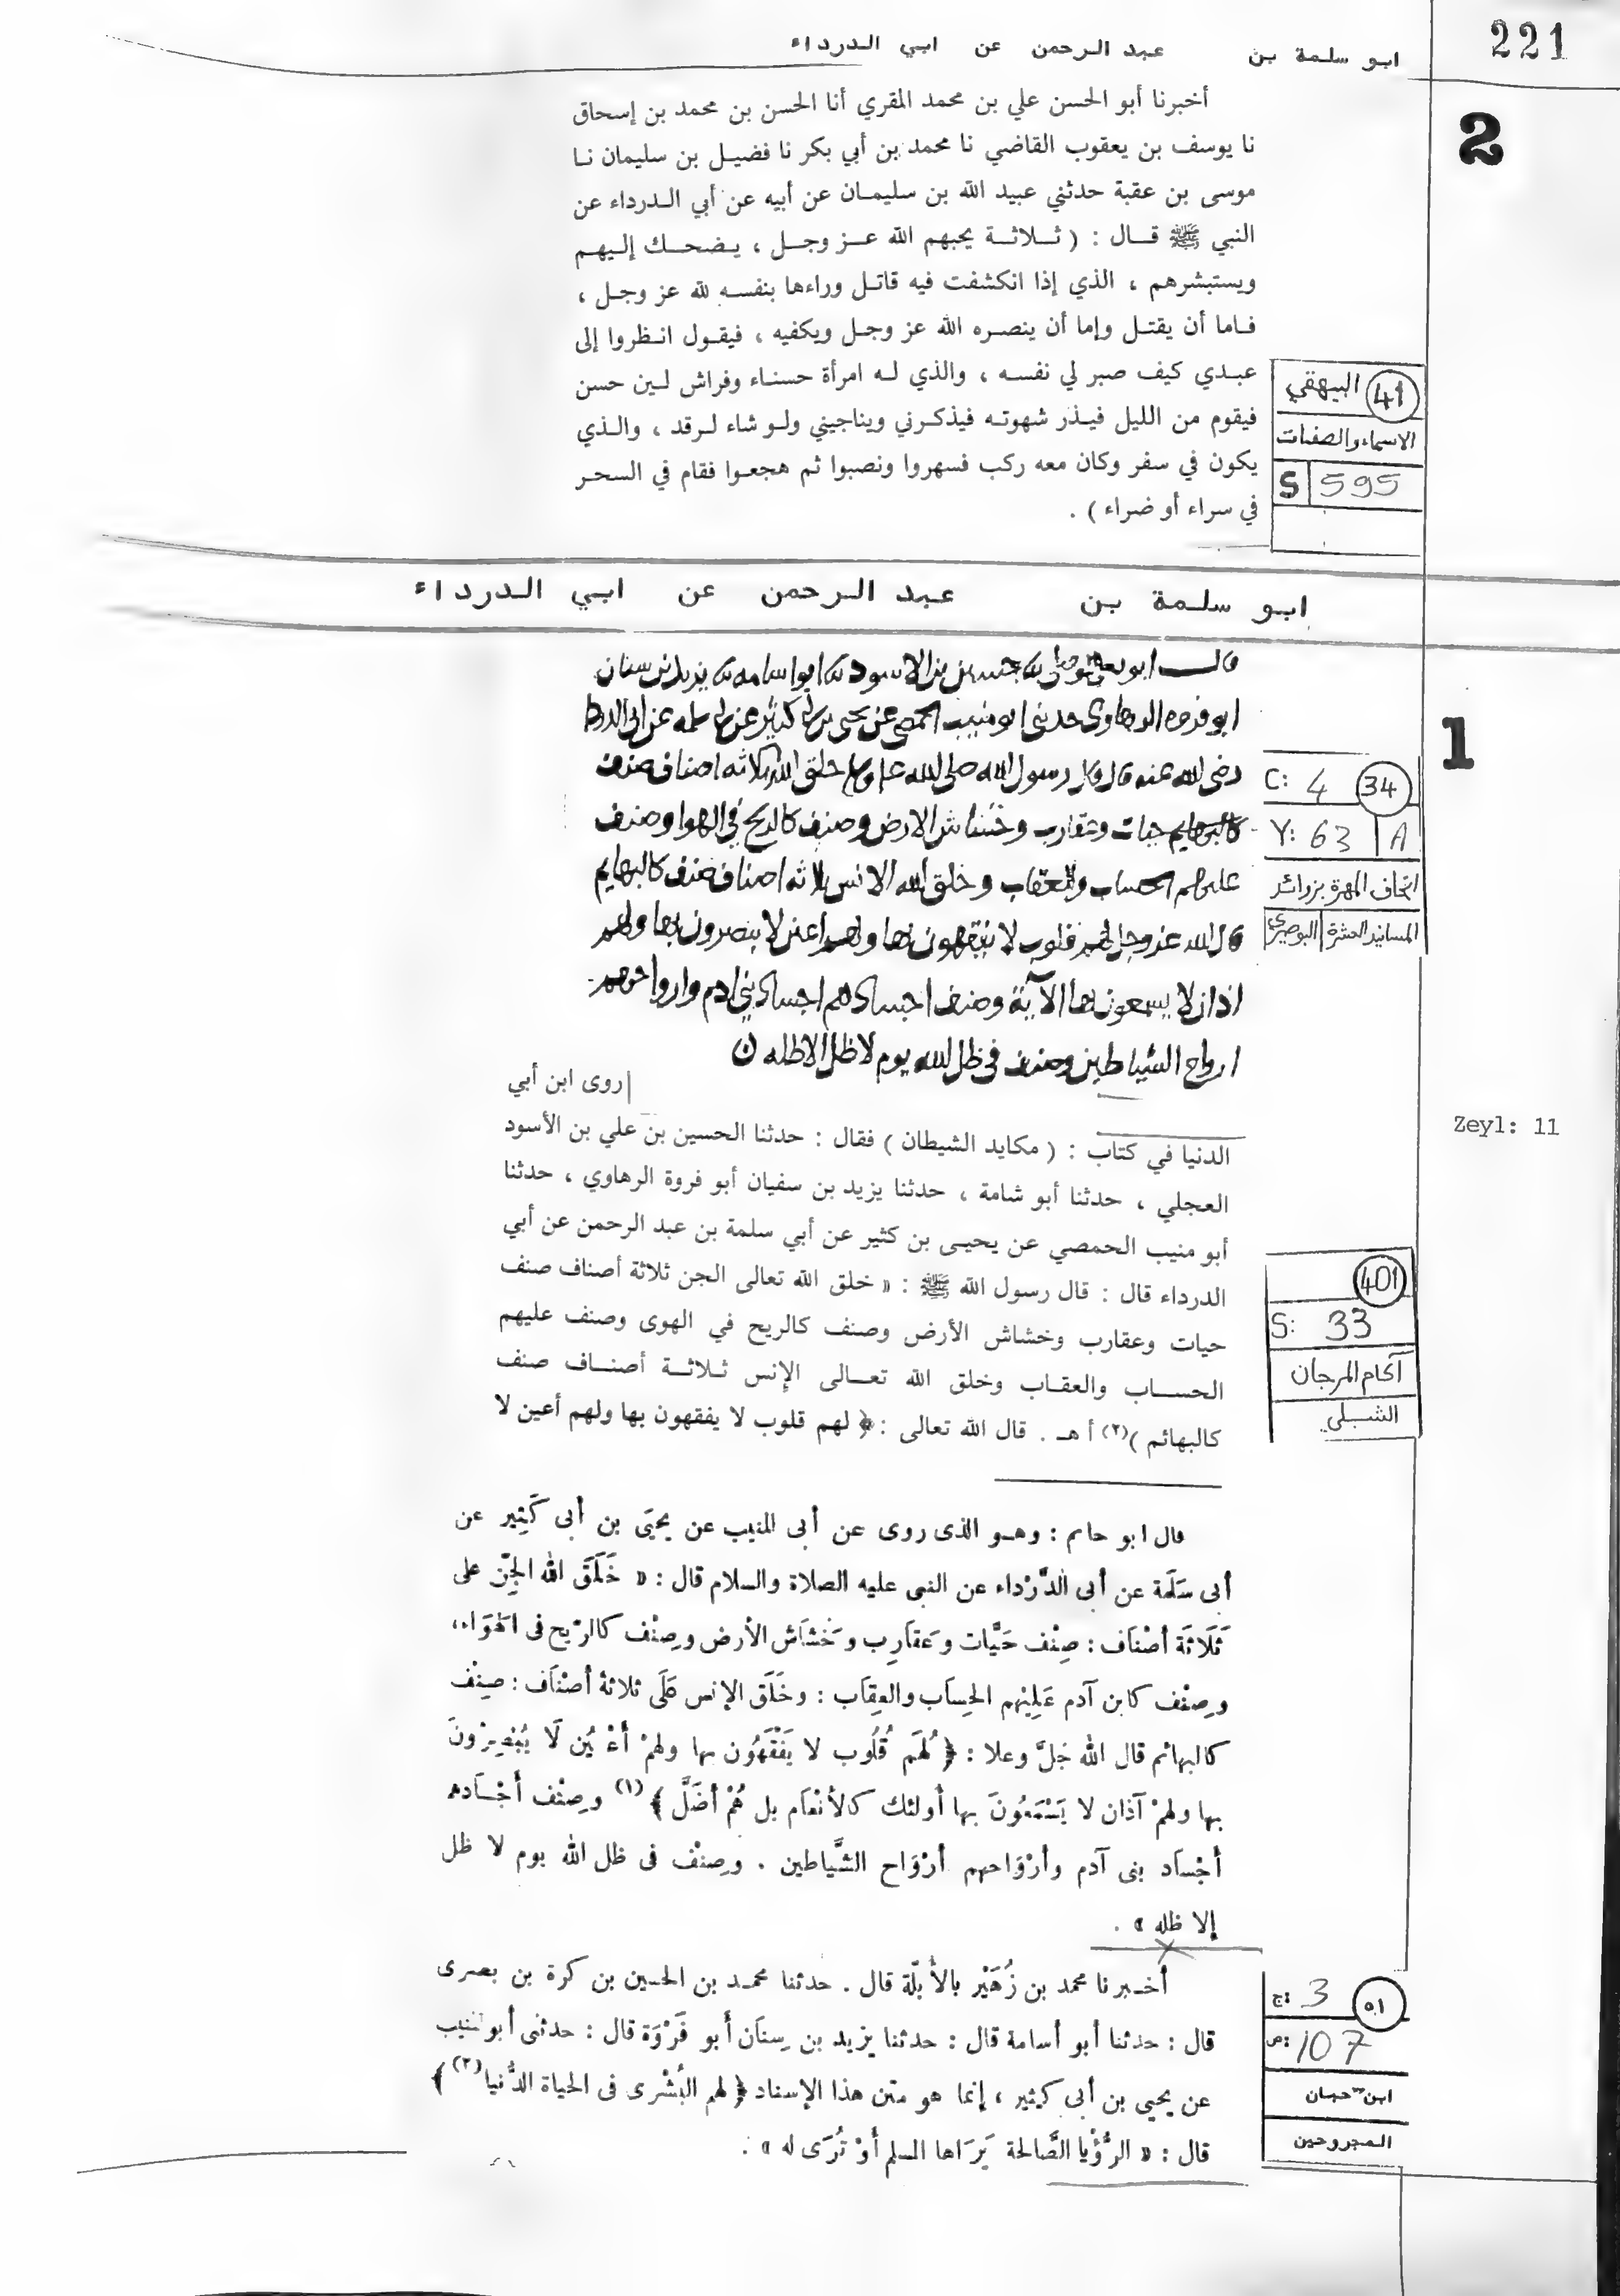 221
ابو سلمة بن عبد الرحمن عن ابي الدرداء
2
أخبرنا أبو الحسن علي بن محمد المقري أنا الحسن بن محمد بن إسحاق
نا يوسف بن يعقوب القاضي نا محمد بن أبي بكر نا فضيل بن سليمان نا
موسى بن عقبة حدثني عبيد الله بن سليمان عن أبيه عن أبي الدرداء عن
النبي ﷺ قال : ( ثلاثة يحبهم الله عز وجل ، يضحك إليهم
ويستبشرهم ، الذي إذا انكشفت فيه قاتل وراءها بنفسه لله عز وجل ،
فاما أن يقتل وإما أن ينصره الله عز وجل ويكفيه ، فيقول انظروا إلى
عبدي كيف صبر لي نفسه ، والذي له امرأة حسناء وفراش لين حسن
فيقوم من الليل فيذر شهوته فيذكرني ويناجيني ولو شاء لرقد ، والذي
يكون في سفر وكان معه ركب فسهروا ونصبوا ثم هجعوا فقام في السحر
في سراء أو ضراء ) .
41 البيهقي
الاسماء والصفات
S 595
ابو سلمة بن عبد الرحمن عن ابي الدرداء
1
قال ابو يعلى حسين بن الاسود ابوا سامه يزيد بن سنان
ابو فروه الرهاوى حدثنى ابو منيب الحمصى عن يحيى بن ابى كثير عن ابى سلمه عن ابى الدردا
رضى الله عنه قال قال رسول الله صلى الله عليه وسلم خلق الله ثلاثه اصناف صنف
كالبهايم حيات وعقارب وخشاش الارض وصنف كالريح في الهوا وصنف
عليهم الحساب والعقاب وخلق الله الانس ثلاثه اصناف صنف كالبهايم
قال الله عز وجل لهم قلوب لا يفقهون بها ولهم اعين لا يبصرون بها ولهم
اذان لا يسمعون بها الآية وصنف اجسادهم اجساد بني ادم وارواحهم
ارواح الشياطين وصنف في ظل الله يوم لا ظل الا ظله ن
34 C: 4
Y: 63 A
اتحاف المهرة بزوائد
المسانيد العشرة البوصيري
روى ابن أبي
الدنيا في كتاب : ( مكايد الشيطان ) فقال : حدثنا الحسين بن علي بن الأسود
العجلي ، حدثنا أبو شامة ، حدثنا يزيد بن سفيان أبو فروة الرهاوي ، حدثنا
أبو منيب الحمصي عن يحيى بن كثير عن أبي سلمة بن عبد الرحمن عن أبي
الدرداء قال : قال رسول الله ﷺ : « خلق الله تعالى الجن ثلاثة أصناف صنف
حيات وعقارب وخشاش الأرض وصنف كالريح في الهوى وصنف عليهم
الحساب والعقاب وخلق الله تعالى الإنس ثلاثة أصناف صنف
كالبهائم )(٢) أ هـ . قال الله تعالى : ﴿ لهم قلوب لا يفقهون بها ولهم أعين لا
Zeyl: 11
401
S: 33
آكام المرجان
الشبلي
قال ابو حاتم : وهو الذى روى عن أبى المنيب عن يحيَى بن أبى كَثِير عن
أبى سَلَمة عن أبى الدَّرْداء عن النبى عليه الصلاة والسلام قال : « خَلَقَ الله الجِنّ على
ثَلَاثَة أصْنَاف : صِنْف حَيَّات وعَقاَرِب وخَشاَش الأرض وصِنْف كالرّيح فى الهَوَاء،
وصِنْف كابن آدم عَلَيْهم الحِسَاب والعِقاَب : وخَلَق الإنس عَلَى ثلاثة أصْنَاف : صِنْف
كالبهائم قال الله جَلَّ وعلا : ﴿ لهُمَ قُلُوب لا يَفْقَهُون بها ولهمْ أعْيُن لَا يُبْصِرُونَ
بها ولهمْ آذان لا يَسْمَعُونَ بها أولئك كالأنْعاَم بل هُمْ أضَلَّ ﴾ (١) وصِنْف أجْسَادهم
أجْسَاد بنى آدم وأرْوَاحهم أرْوَاح الشَّياطين . وصِنْف فى ظل الله يوم لا ظل
إلا ظله » .
أخبرنا محمد بن زُهَيْر بالأبلّة قال . حدثنا محمد بن الحسين بن كرة بن بصرى
قال : حدثنا أبو أسامة قال : حدثنا يزيد بن سِنَان أبو فَرْوَة قال : حدثنى أبو المنيب
عن يحيى بن أبى كثير ، إنما هو متن هذا الإسناد ﴿ لهم البُشْرى فى الحياة الدُّنيا(٢) ﴾
قال : « الرُّؤْيا الصَّالحة يَرَاها المسلم أوْ تُرَى له » .
ج: 3 ١٥
ص: 107
ابن حبان
المجروحين